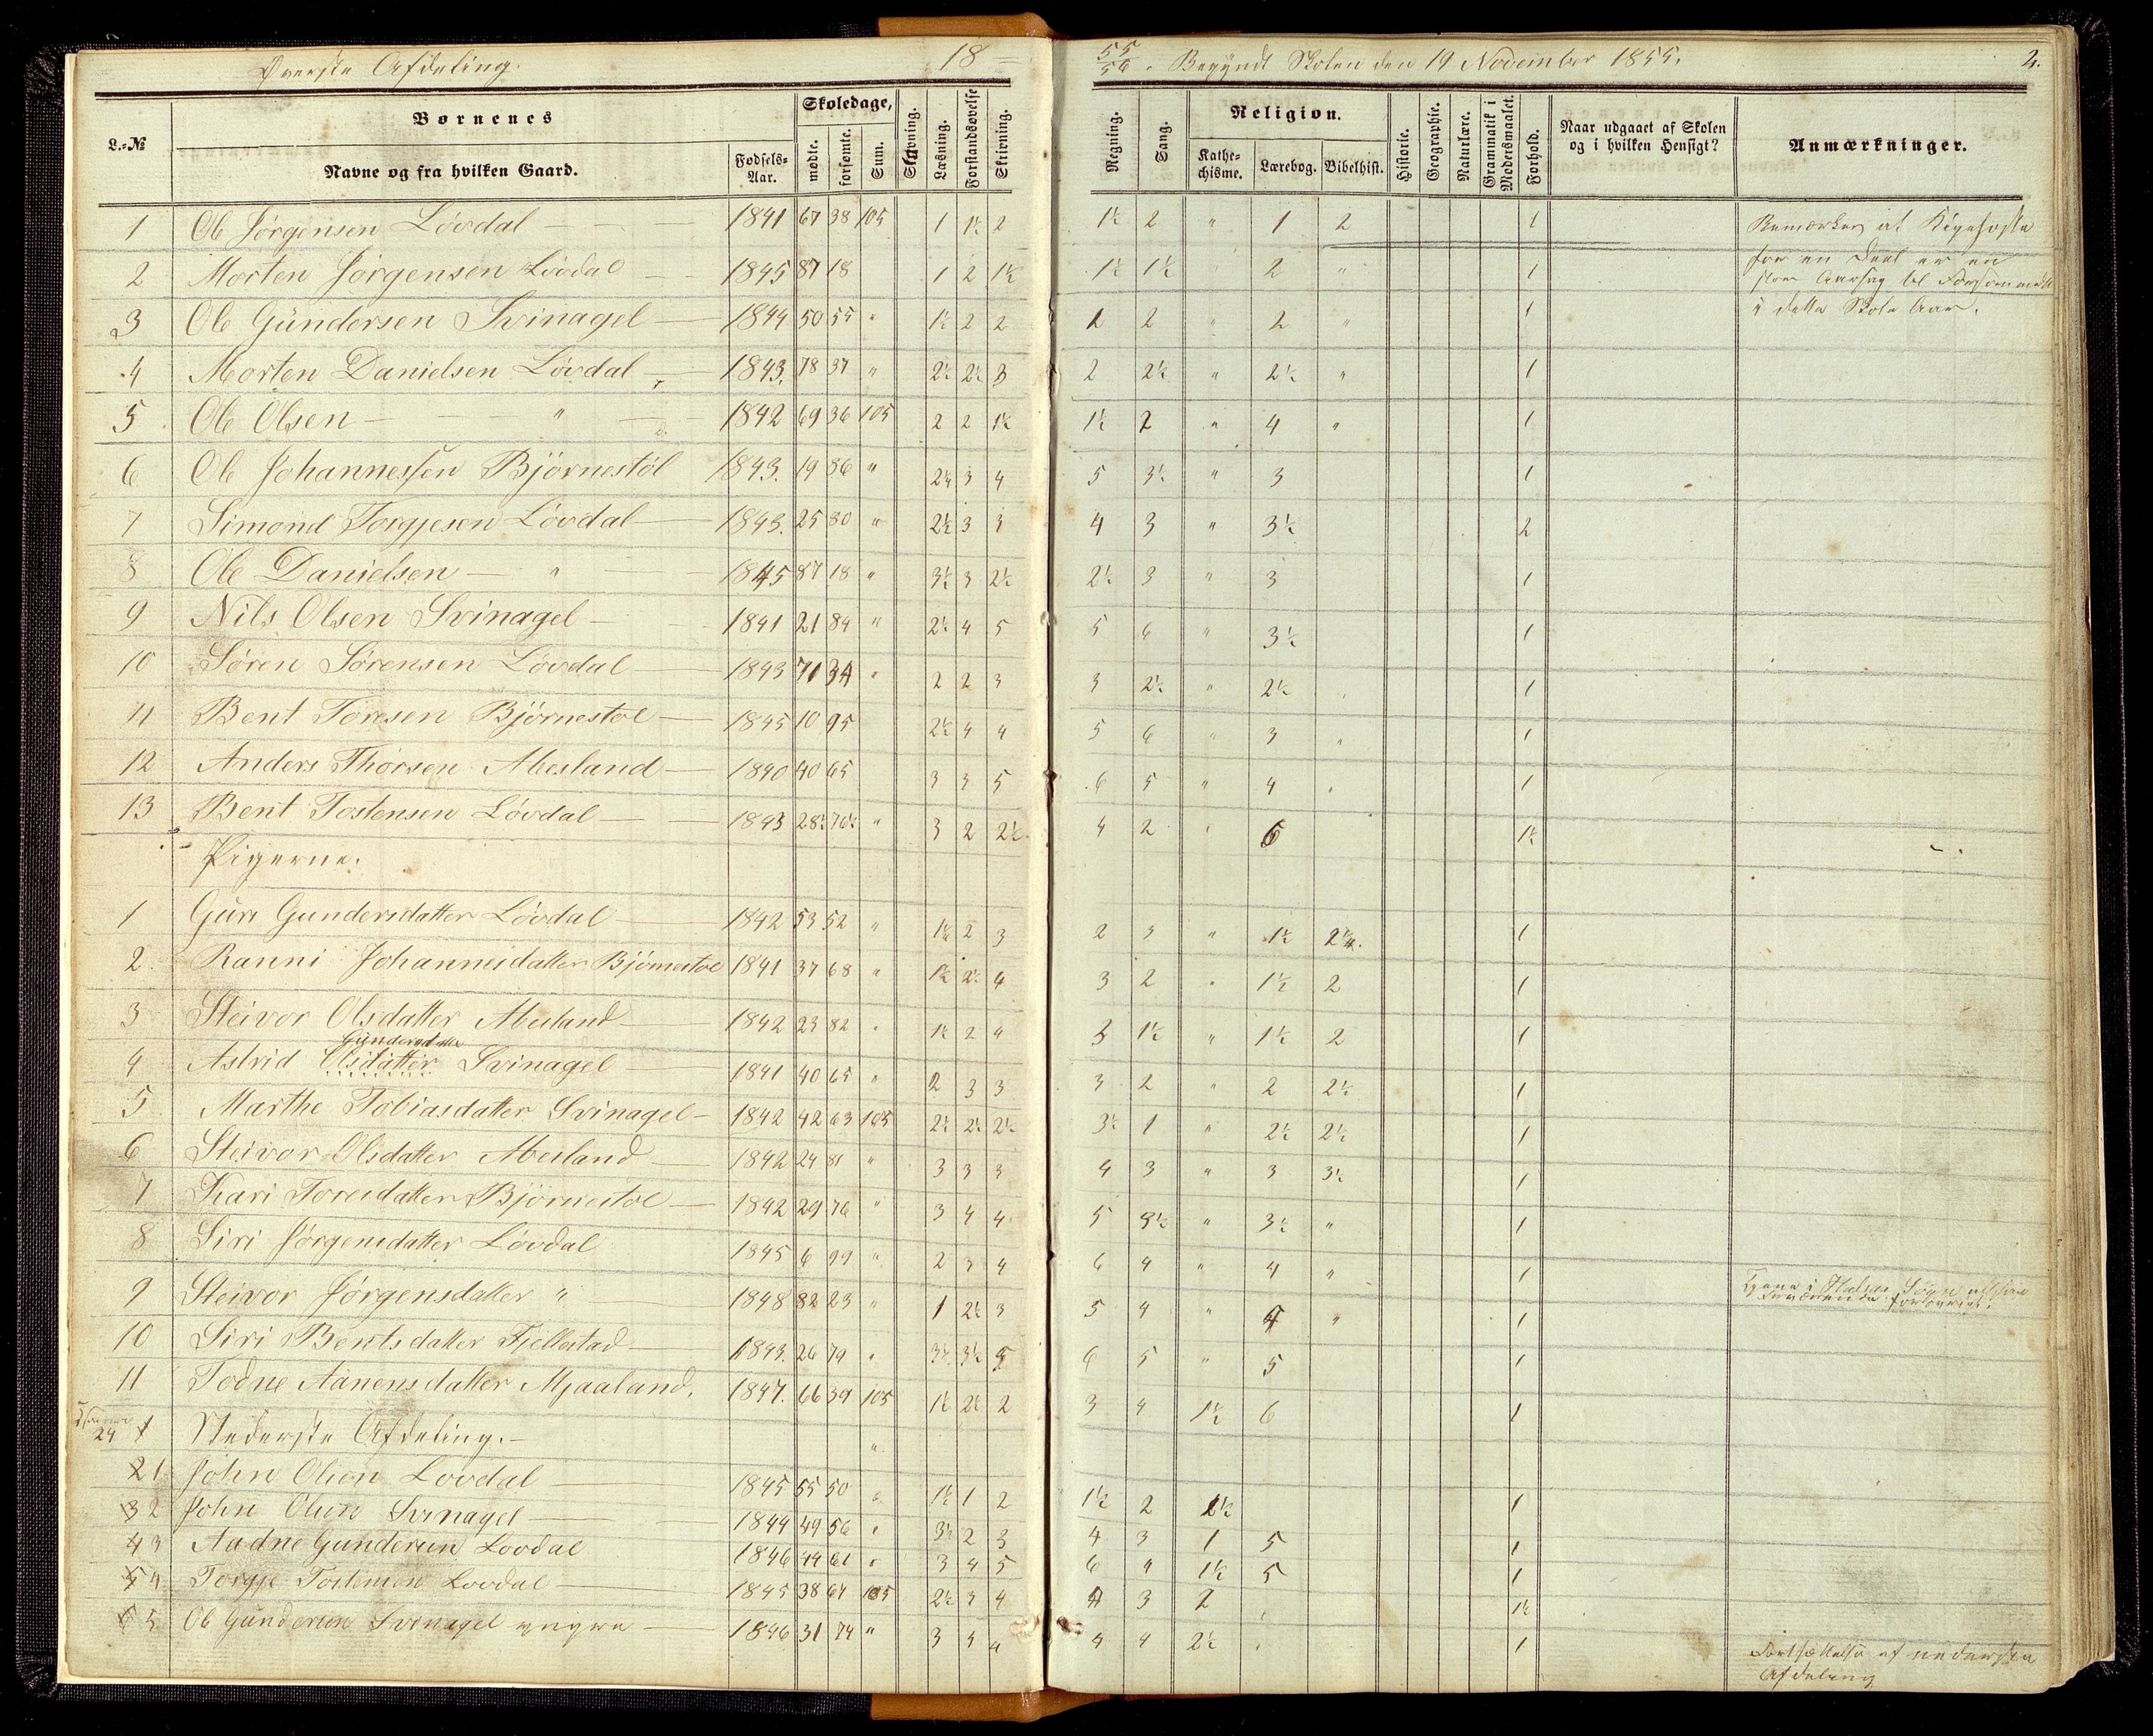 Øverste Afdeling. 18 55/56. Begyndt Skolen den 19 November 1855. 2.
L.-No Børnenes Skoledage, Stavning. Læsning. Forstandsøvelse Skrivning. Regning. Sang. Religion. Historie. Geographie. Naturlære. Grammatik i Modersmaalet. Forhold. Naar udgaaet af Skolen og i hvilken Hensigt? Anmærkninger.
Navne og fra hvilken Gaard. Fødsels-Aar. mødte. forsømte. Sum. Kathe-chisme. Lærebog. Bibelhist.
1 Ole Jørgensen Løvdal 1841 67 38 105 1 1½ 2 1½ 2 " 1 2 1 Bemærkes at Kigehoste
2 Morten Jørgensen Løvdal 1845 87 18 1 2 1½ 1½ 1½ " 2 " 1 for en Deel er en
stor Aarsag til Forsømmelse
3 Ole Gundersen Svinagel 1844 50 55 " 1½ 2 2 1 2 " 2 " 1 i dette Skole Aar.
4 Morten Danielsen Løvdal 1843. 78 37 " 2½ 2½ 3 2 2½ " 2½ " 1
5 Ole Olsen " 1842 69 36 105 2 2 1½ 1½ 2 " 4 " 1
6 Ole Johannessen Bjørnestøl 1843. 19 86 " 2½ 3 4 5 3½ " 3 1
7 Simond Torgjesen Løvdal 1843. 25 80 " 2½ 3 3 4 3 " 3½ 2
8 Ole Danielsen " 1845 87 18 " 3½ 3 2½ 2½ 3 " 3 1
9 Nils Olsen Svinagel 1841 21 84 " 2½ 4 5 5 6 " 3½ 1
10 Søren Sørensen Løvdal 1843 71 34 " 2 2 3 3 2½ " 2½ 1
11 Bent Toresen Bjørnestøl 1845 10 95 2½ 4 4 5 6 " 3 " 1
12 Anders Thorsen Abesland 1840 40 65 3 3 5 6 5 " 4 " 1
13 Bent Tostensen Løvdal 1843 28½ 76½ " 3 2 2½ 4 2 " 6 1½
Pigerne.
1 Guri Gundersdatter Løvdal 1842 53 52 " 1½ 2 3 2 3 " 1½ 2½. 1
2. Ranni Johannesdatter Bjørnestøl 1841 37 68 " 1½ 2½ 4 3 2 " 1½ 2 1
3 Steivor Olsdatter Abesland 1842 23 82 " 1½ 2 4 3 1½ " 1½ 2 1
Gundersdatter
4 Astrid Olsdatter Svinagel 1841 40 65 " 2 3 3 3 2 " 2 2½ 1
5 Marthe Tobiasdatter Svinagel 1842 42 63 105 2½ 2½ 2½ 3½ 1 " 2½ 2½ 1
6 Steivor Olsdatter Abesland 1842 24 81 " 3 3 3 4 3 " 3 3½ 1
7 Kari Toresdatter Bjørnestøl 1842 29 76 " 3 4 4 5 3½ " 3½ " 1
8 Siri Jørgensdatter Løvdal 1845 6 99 " 2 3 4 6 4 " 4 " 1
9 Steivor Jørgensdatter " 1848 82 23 " 1 2½ 3 5 4 " 4 " 1
10 Siri Bentsdatter Fjellestad 1843. 26 79 " 3½ 3½ 5 6 5 " 5 1
11 Todne Aanensdatter Mjaaland. 1847. 66 39 105 1½ 2½ 2 3 4 1½ 6 1
24 1 Nederste Afdeling.
2 1 John Olsen Løvdal 1845 55 50 " 1½ 1 2 1½ 2 1½ 1
3 2 John Olsen Svinagel 1844 49 56 " 3½ 2 3 4 3 1 5 1
4 3 Aadne Gundersen Løvdal 1846 44 61 " 3 4 5 6 4 1½ 5 1
5 4 Torgje Tostensen Løvdal 1845 38 67 105 2½ 3 4 4 3 2 1½
6 5 Ole Gundersen Svinagel yngre 1846 31 74 " 3 4 4 4 4 2½ " 1 Fortsættelse af nederste
Afdeling